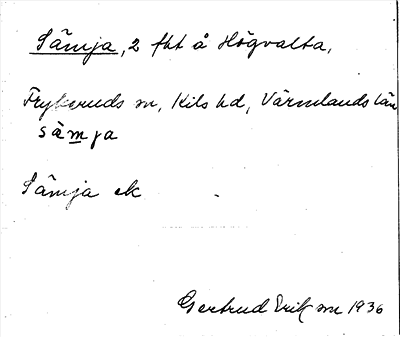 Sämja, 2 fht å Högvalta,
Frykeruds sn, Kils hd, Värmlands län
sämja
Sämja ek
Gertrud Erik sn 1936